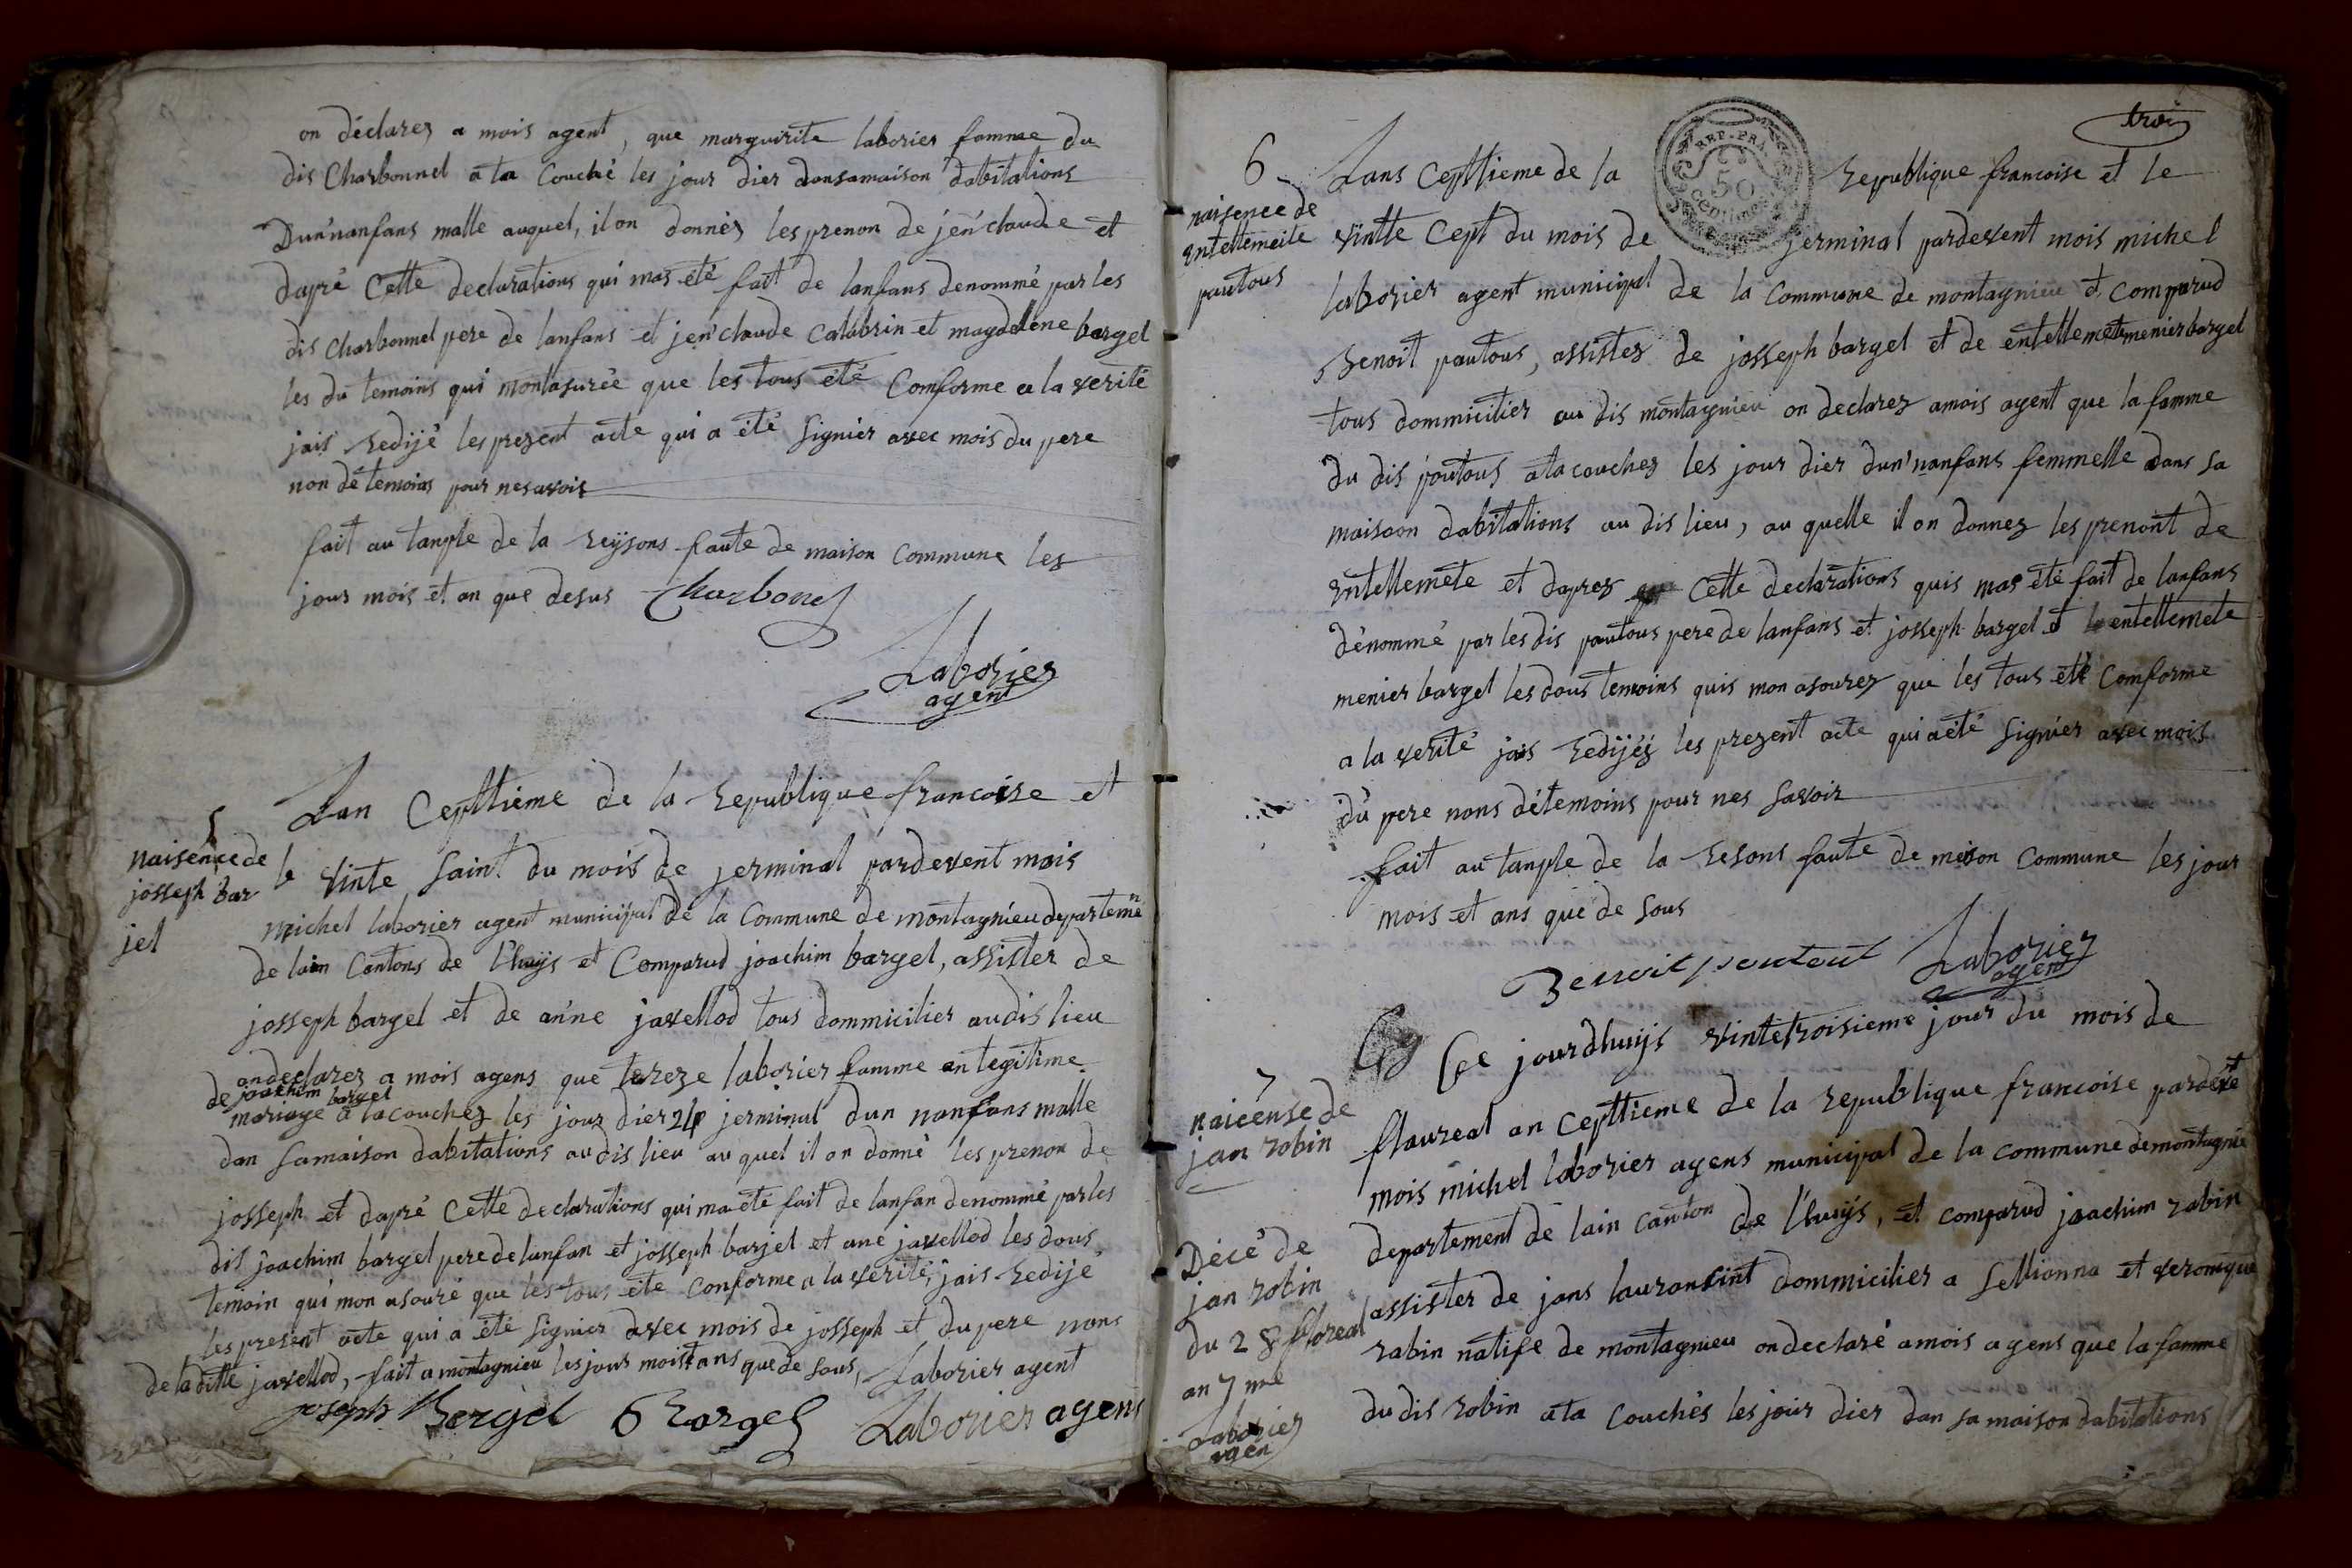 on déclarez a mois agent, que marguirite laborier famme du
dis Charbonnel a ta Couché les jour dier dansamaison dabitations
Dun'nanfans malle auquel, il on donnéz les prenon de jen'claude et
dapré Cette declarations qui mas été fait de lanfans denommé par les
dis Charbonnel pere de lanfans et jen'claude Calabrin et magdelene bargel
les du temoins qui montasurée que les tous été Comforme a la verité
jais redijé les prezent acte qui a été Signier avec mois du pere
non dé temoins pour nesavoir
fait au tanple de la reijsons faute de maison commune les
jours mois et an que desus Charbonel
Laborier
agent
5
naisence de
josseph bar
jel
Lan Cepttieme de la republique francoise et
le vinte Saint du mois de jerminal pardevent mois
michel laborier agent municipal de la Commune de montagnieu departemen
de lain Cantons de l'huijs et Comparud joachim bargel, assister de
josseph bargel et de an'ne javellod tous dommicilier audis lieu
on declarez a mois agens que tereze laborier famme en legitime
de joachim bargel
mariage a lacouchez les jour dier 24 jerminal dun nanfans malle
dan samaison dabitations au dis lieu au quel il on donné les prenon de
josseph et dapré Cette declarations qui ma été fait de lanfan denommé par les
dis joachim bargel pere de lanfan et josseph barjel et ane javellod les dous
temoin qui mon asouré que les tous ete Conforme a la verité, jais redijé
les present acte qui a été Signier avec mois de josseph et du pere nons
de la ditte javellod, fait a montagnieu les jour mois et ans que de sous, Laborier agent
joseph Bergel Bargel Laborier agens
troi
REP. FRA.
50
centimes
6
naisence de
entellemeite
poutous
Lans Cepttieme de la republique francoise et le
vintte Cept du mois de jerminal pardevent mois michel
laborier agent municipal de la Commune de montagnieu et Comparud
Benoit poutous, assistez de josseph bargel et de entellemete menier bargel
tous dommicilier au dis montagnieu on declarez amois agent que la famme
du dis poutous atacouchez les jour dier dun'nanfans femmelle dans sa
maisoon dabitations au dis lieu, au quelle il on donnez les prenont de
entellemete et daprez Cette declarations quis mas été fait de lanfans
dénommé par les dis poutous pere de lanfans et josseph bargel et entellemete
menier bargel les dous temoins quis mon asourez que les tous été Comforme
a la verité jais redijéz les prezent acte qui a été Signier avec mois
du pere nons détemoins pour nes savoir
fait au tanple de la resons faute de meson commune les jour
mois et ans que de sous
Benoit poutout Laborier
agent
7
naicense de
jan robin
Ce jourdhuijs vintetroisieme jour du mois de
flaureal an cepttieme de la republique francoise pardevent
mois michel laborier agens municipal de la commune de montagnie
departement de lain canton de l'huijs, et comparud joachim rabin
assister de jans lauransint dommicilier a Sellionna et veronique
rabin natife de montagnieu on declaré amois agens que la famme
du dis robin ata couchés les jour dier dan sa maison dabitations
Décé de
jan robin
du 28 floreal
an 7 me
Laborier
agen